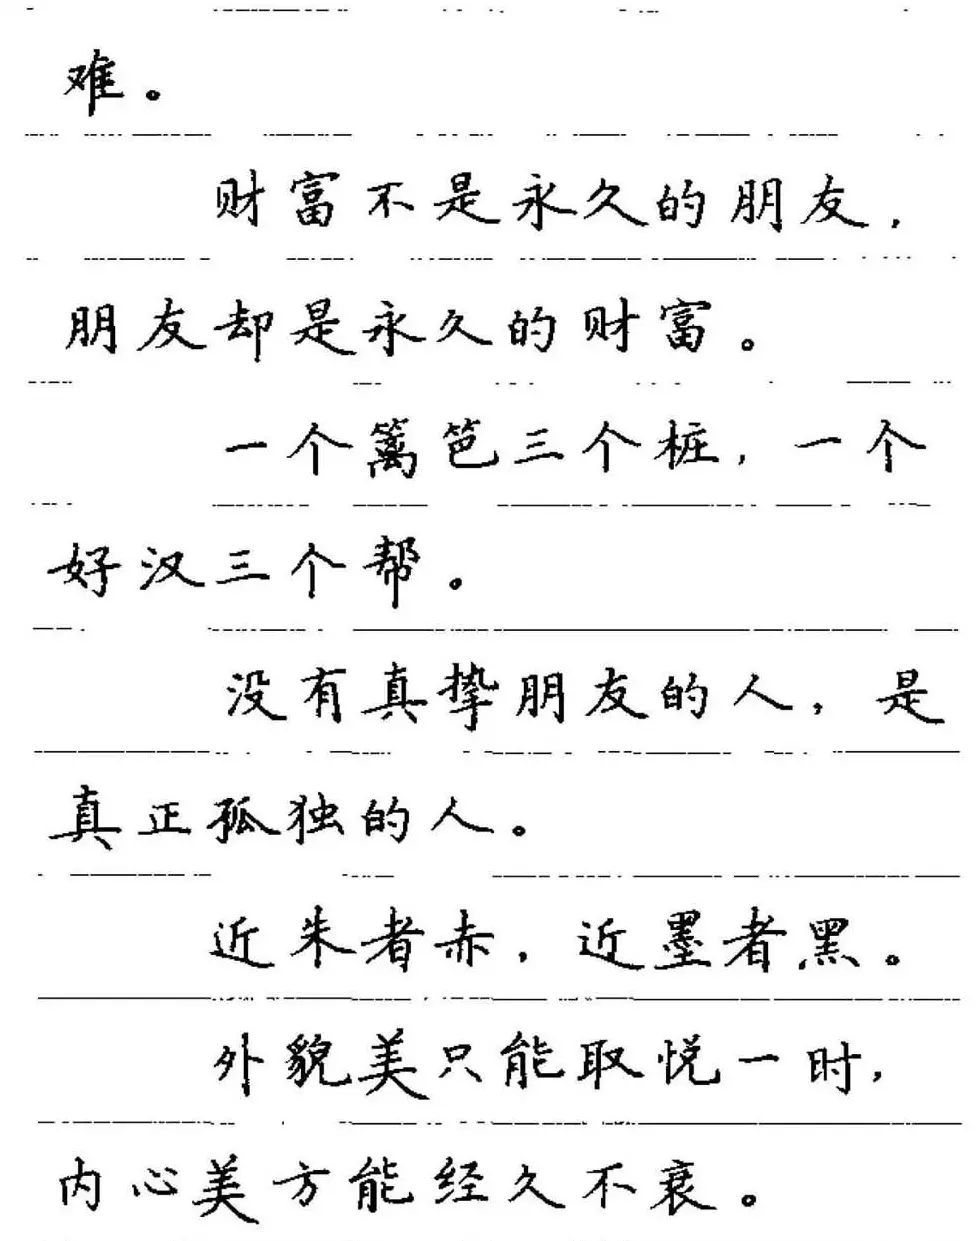 难。
财富不是永久的朋友，
朋友却是永久的财富。
一个篱笆三个桩，一个
好汉三个帮。
没有真挚朋友的人，是
真正孤独的人。
近朱者赤，近墨者黑。
外貌美只能取悦一时，
内心美方能经久不衰。